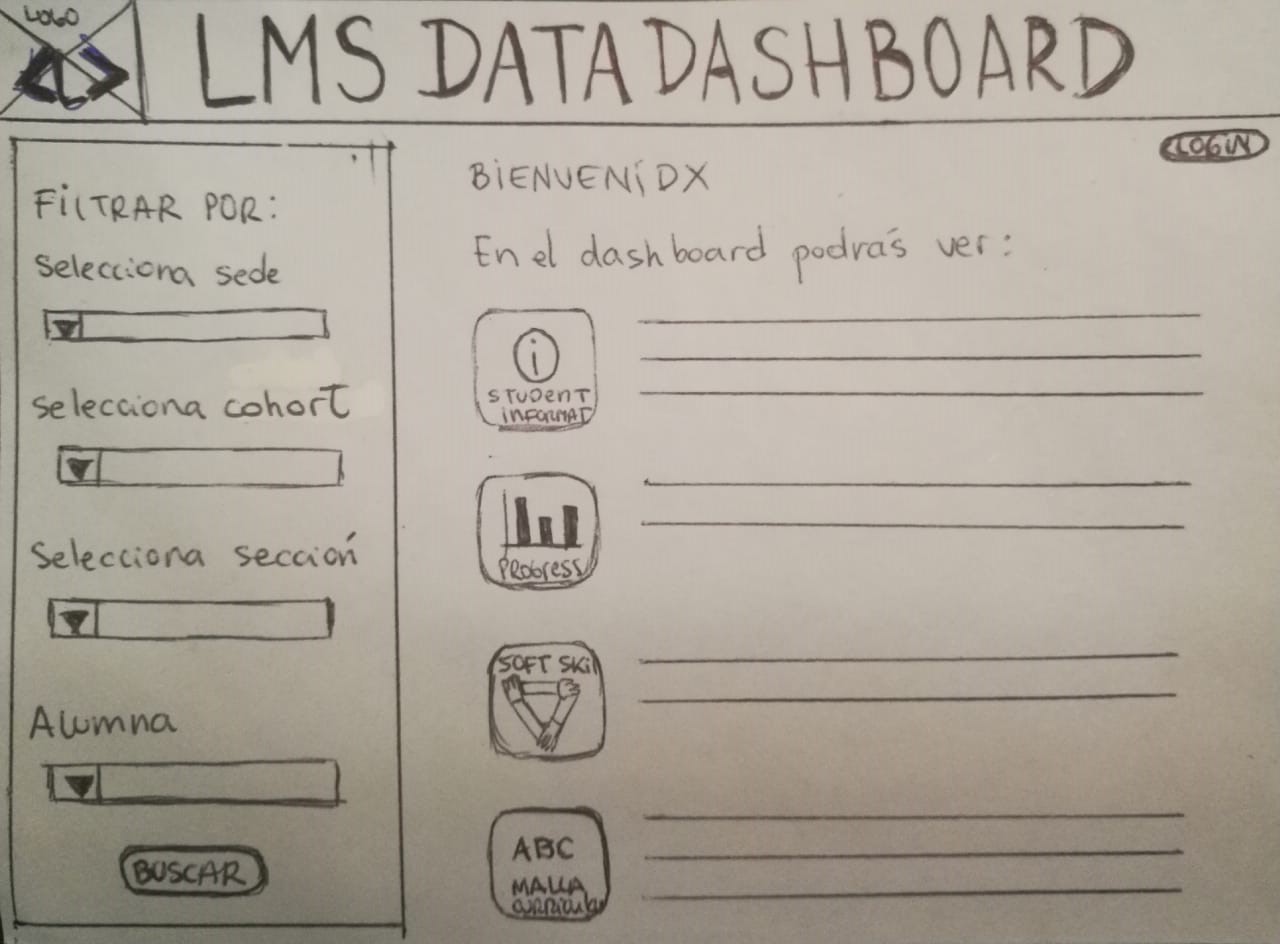 LOGO
LMS DATA DASHBOARD
LOGIN
FILTRAR POR:
Selecciona sede
selecciona cohort
Selecciona sección
Alumna
BUSCAR
BIENVENIDX
En el dashboard podrás ver:
i
STUDENT
INFORMAT
PROGRESS
SOFT SKIL
ABC
MALLA
curricular